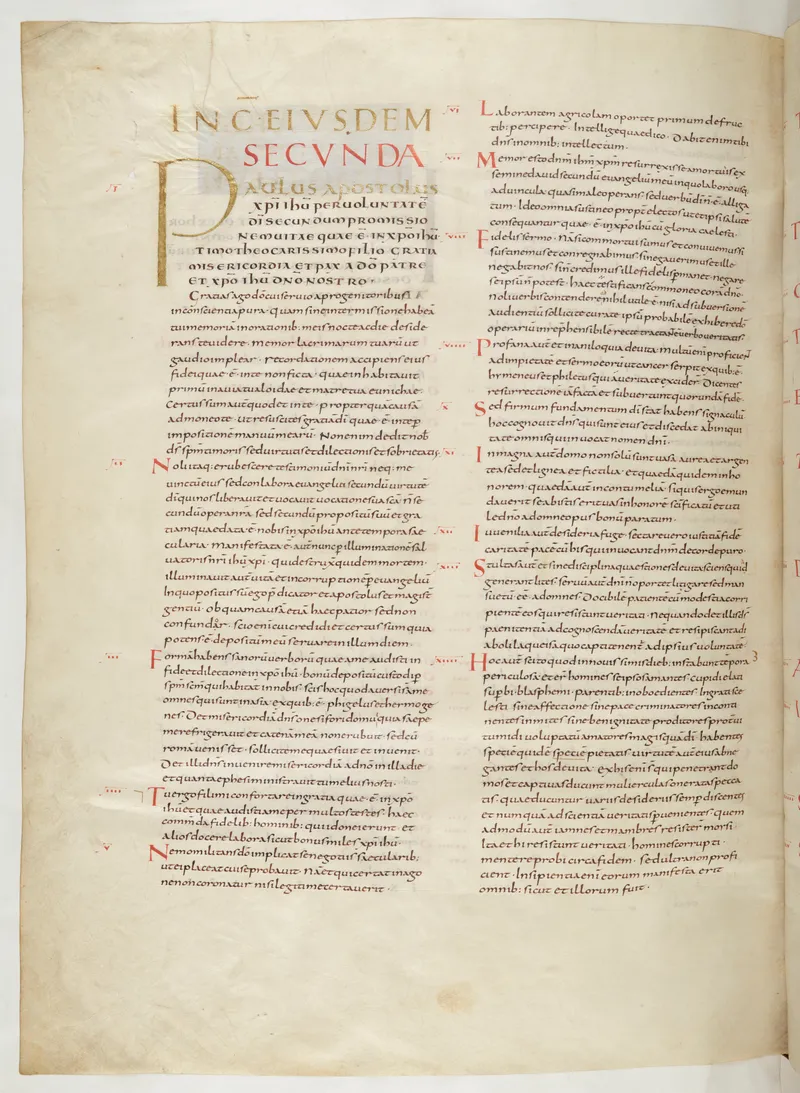 INC̅ EIVSDEM
SECVNDA
PAULUS APOSTOLUS
xp̄i ihū per uoluntatē
dī secundum promissio
nem uitae quae ē in xp̄o ihū
timotheo carissimo filio gratia
misericordia et pax a dō patre
et xp̄o ihū dn̄o nostro·
Gratias ago dō cui seruio a progenitoribus
in conscientia pura· quam sine intermissione habeā
tui memoriā in orationib; meis nocte ac die· deside
rans te uidere· memor lacrimarum tuarū ut
gaudio implear· recordationem accipiens eius
fidei quae ē in te non ficta· quae et habitauit
primū in auia tua loide et matre tua eunichae·
Certus sum autē quod et in te· propter quā causā
admoneo te· ut resuscites gratiā dī· quae ē in te p
impositionē manuū mearū· Non enim dedit nob
ds̄ spm̄ timoris sed uirtutis et dilectionis et sobrietatis·
Noli itaq; erubescere testimoniū dn̄i nr̄i neq; me
uinctū eius· sed conlabora euangelio secundū uirtutē
dī qui nos liberauit et uocauit uocatione sua scā· n̄ se
cundū opera nr̄a sed secundū propositū suū et gra
tiam quae data ē nobis in xp̄o ihū ante tempora sae
cularia· manifestata ē autē nunc p illuminationē sal
uatoris nr̄i ihū xp̄i· qui destruxit quidem mortem·
illuminauit autē uitā et incorruptionē p euangeliū
In quo positus sū ego p̄dicator et apostolus et magist
gentiū· ob quam causā etiā haec patior sed non
confundār· scio enī cui credidi et certus sum quia
potens ē depositū meū seruare in illum diem·
Formā habens sanorū uerborū quae a me audisti in
fide et dilectione in xp̄o ihū· bonū depositū custodi p
spm̄ scm̄ qui habitat in nobis· scis hoc quod auersi s̄ a me
omnes qui sunt in asia· ex quib; ē· phigelus et hermoge
nes· Det misericordiā dn̄s onesifori domui quia saepe
me refrigerauit et catenā meā non erubuit· sed cū
romā uenisset· sollicite me quaesiuit et inuenit·
Det illi dn̄s inuenire misericordiā a dn̄o in illa die
et quanta ephesi ministrauit tu melius nosti·
Tu ergo fili mi confortare in gratia quae ē in xp̄o
ihū et quae audisti a me per multos testes· haec
commdā fidelib; hominib; qui idonei erunt et
alios docere· labora sicut bonus miles xp̄i ihū·
Nemo militans dō implicat se negotiis saecularib;
ut ei placeat cui se probauit· Nā et qui certat in ago
ne non coronatur nisi legitime certauerit·
Laborantem agricolam oportet primum de fruc
tib; percipere· Intellige quae dico· Dabit enim tibi
dn̄s in omnib; intellectum·
Memor esto dn̄m ihm̄ xpm̄ resurrexisse a mortuis ex
semine dauid secundū euangeliū meū in quo laboro usq;
ad uincula quasi male operans· sed uerbū dī n̄ ē alliga
tum· Ideo omnia sustineo propt̄ electos ut et ipsi salutē
consequantur quae ē in xp̄o ihū cū gloria caelesti·
Fidelis sermo· Nā si commortui sumus et conuiuemus· si
sustinemus et conregnabimus· si negauerimus et ille
negabit nos· si n̄ credimus ille fidelis p̄manet negare
se ipsū n̄ potest· haec testificans commoneo corā dn̄o·
noli uerbis contendere nihil utile ē nisi ad subuersionē
audientiū· sollicite cura te ipsū probabilē exhibere dō
operariū inreprehensibilē recte tractantē uerbū ueritatis·
Profana autē et inaniloqua deuita· multū enī proficiunt
ad impietatē et sermo eorū ut cancer serpit· ex quib; ē
hymeneus et philetus qui a ueritate excider· Dicentes
resurrectionē iā factā et subuerterunt quorundā fidē·
Sed firmum fundamentum dī stat habens signaculū
hoc cognouit dn̄s qui sunt eius et discedat ab iniqui
tate omnis qui inuocat nomen dn̄i·
In magna autē domo non solū sunt uasa aurea et argen
tea sed et lignea et fictilia· et quaedā quidem in ho
norem· quaedā autē in contumeliā· si quis ergo emun
dauerit se ab istis erit uas in honorē scīficatū et uti
le dn̄o ad omne opus bonū paratum·
Iuuenilia autē desideria fuge· sectare uero iustitiā fidē
caritatē pacē cū his qui inuocant dn̄m de corde puro·
Stultas autē et sine disciplina quaestiones deuita sciens quid
generant lites· seruū autē dn̄i n̄ oportet litigare sed man
suetū eē ad omnes· Docibilē patientē cū modestia corri
pientē eos qui resistunt ueritati· nequando det illis ds̄
paenitentiā ad cognoscendā ueritatē et resipiscant a di
aboli laqueis a quo capti tenent̄ ad ipsius uoluntatē·
Hoc autē scito quod in nouissimis dieb; instabunt tempora
periculosa et er̄ homines se ipsos amantes· cupidi· elati
supbi· blasphemi· parentib; inoboedientes· Ingrati sce
lesti· sine affectione· sine pace· criminatores· inconti
nentes· inmites· sine benignitate· proditores· proterui
tumidi· uoluptatū amatores magis quā dī· habentes
speciē quidē speciē pietatis uirtutē autē eius abne
gantes et hos deuita· ex his enī s̄ qui penetrant do
mos et captiuas ducunt mulierculas oneratas pecca
tis· quae ducuntur uariis desideriis semp discentes
et numquā ad scientiā ueritatis puenientes· quem
admodū autē iamnes et mambres resister̄ moysi·
Ita et hi resistunt ueritati· homines corrupti·
mente reprobi circa fidem· sed ultra non profi
cient· Insipientia enī eorum manifesta erit
omnib; sicut et illorum fuit·